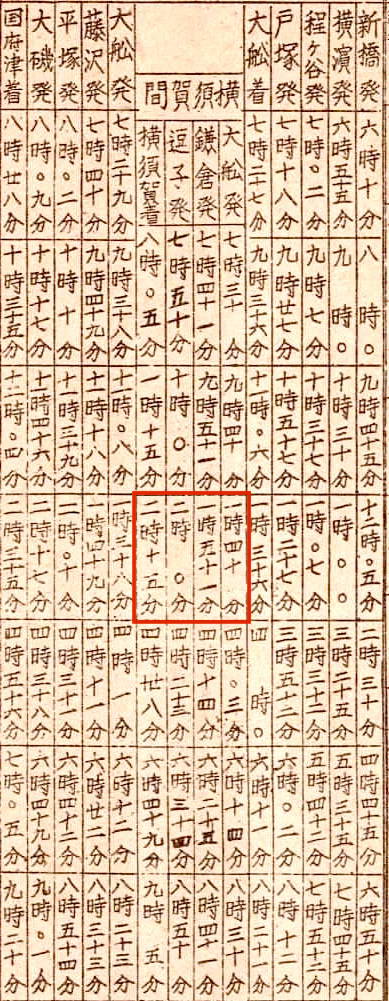 新橋発 六時十分 八時○ 九時四十五分 十二時○五分 二時三十分 四時四十五分 六時五十分
横濱発 六時五十五分 九時○ 十時三十分 一時○○ 三時二十五分 五時三十五分 七時四十五分
程ヶ谷発 七時○二分 九時七分 十時三十七分 一時○七分 三時三十二分 五時四十二分 七時五十二分
戸塚発 七時十八分 九時廿七分 十時五十七分 一時二十七分 三時五十二分 六時○二分 八時十二分
大舩着 七時二十七分 九時三十六分 十一時○六分 一時三十六分 四時○ 六時十一分 八時二十一分
横須賀間
大舩発 七時三十分 九時四十分 一時四十分 四時○三分 六時十四分 八時三十分
鎌倉発 七時四十一分 九時五十一分 一時五十一分 四時十四分 六時二十五分 八時四十一分
逗子発 七時五十分 十時○分 二時○分 四時二十三分 六時三十四分 八時五十分
横須賀着 八時○五分 一時十五分 二時十五分 四時卅八分 六時四十九分 九時五分
大舩発 七時二十九分 九時三十八分 十一時○八分 一時三十八分 四時一分 六時十二分 八時二十三分
藤沢発 七時四十分 九時四十九分 十一時十八分 一時四十九分 四時十一分 六時廿二分 八時三十三分
平塚発 八時○二分 十時十分 十一時三十九分 二時○十分 四時三十分 六時四十二分 八時五十四分
大磯発 八時○九分 十時十七分 十一時四十六分 二時十七分 四時三十八分 六時四十九分 九時○一分
国府津着 八時廿八分 十時三十五分 十二時○四分 二時三十五分 四時五十六分 七時○五分 九時二十分